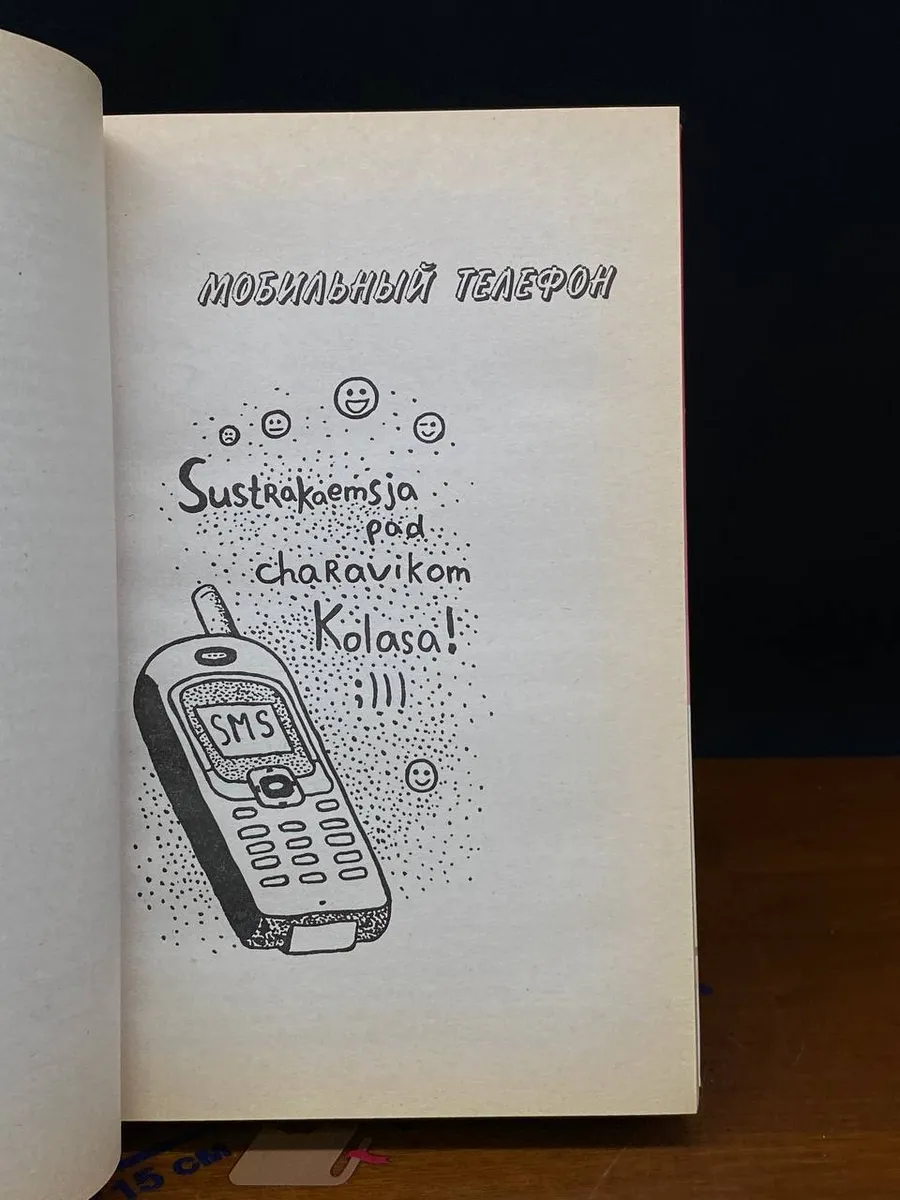 МОБИЛЬНЫЙ ТЕЛЕФОН
Sustrakaemsja
pad
charavikom
Kolasa!
;)))
SMS
15 см